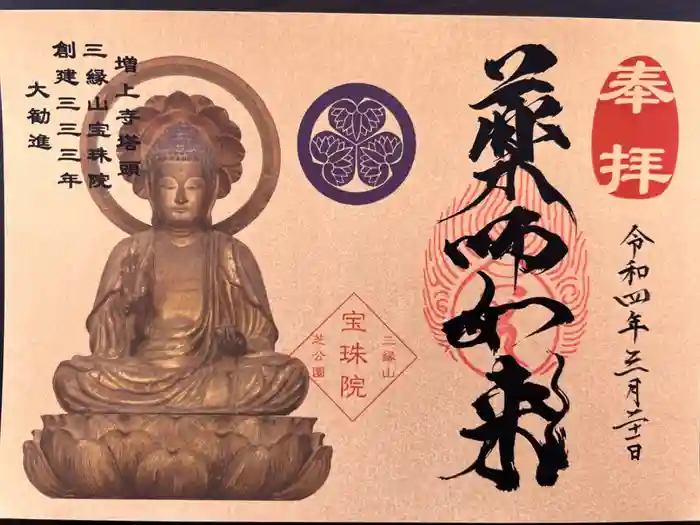 奉拝
令和四年三月廿一日
薬師如来
三縁山
宝珠院
芝公園
増上寺塔頭
三縁山宝珠院
創建三三三年
大勧進